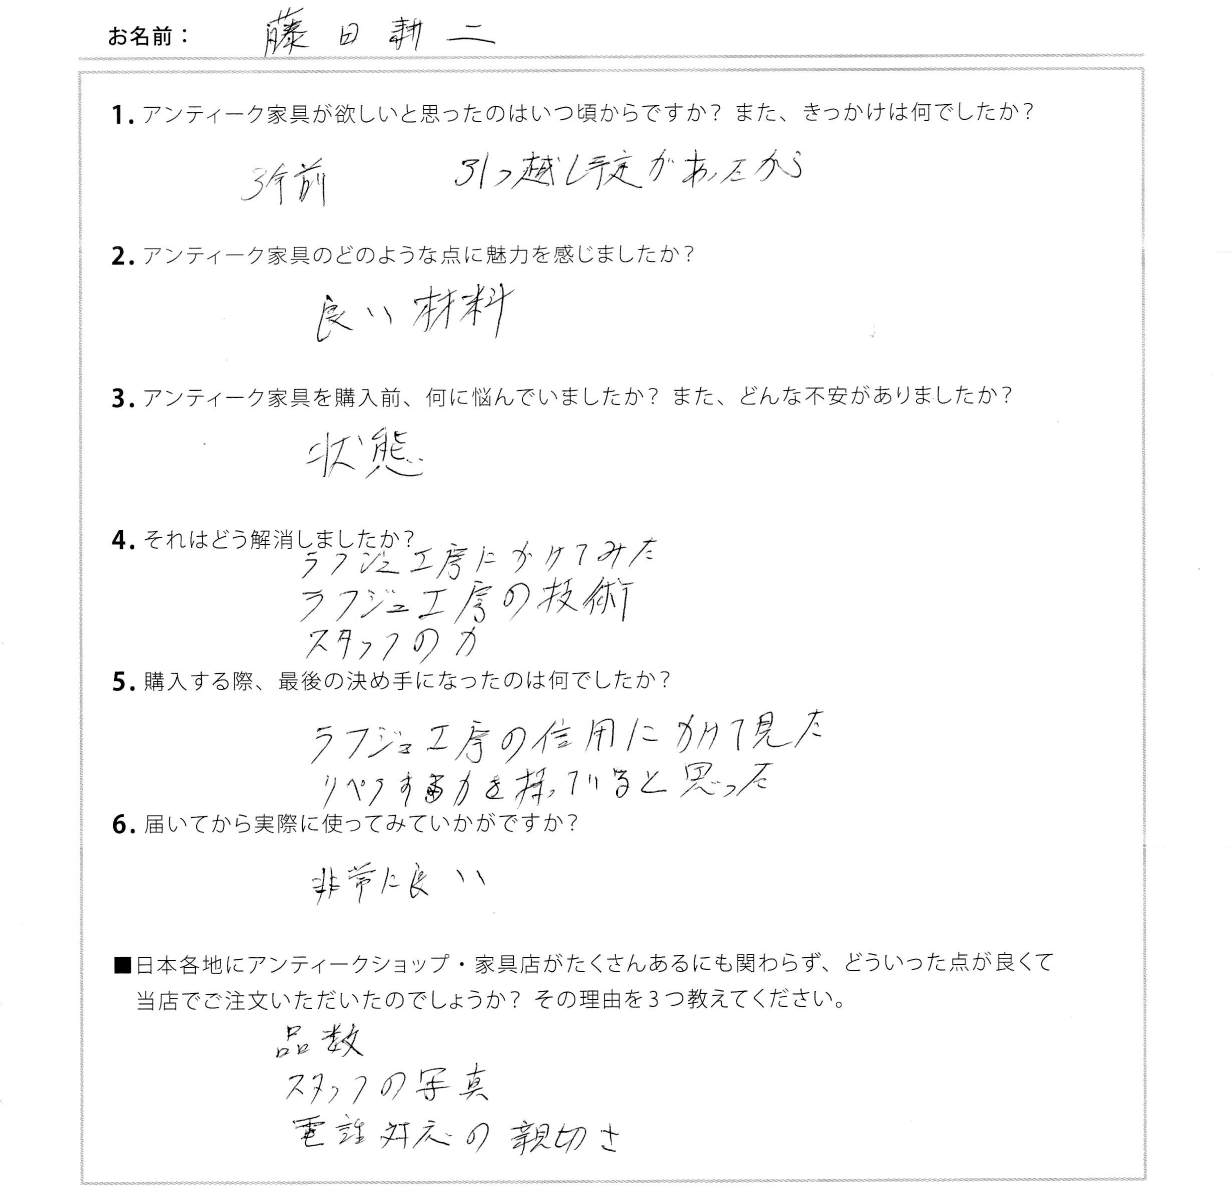 お名前： 藤田耕二
1. アンティーク家具が欲しいと思ったのはいつ頃からですか？ また、きっかけは何でしたか？
3年前 引っ越し予定があったから
2. アンティーク家具のどのような点に魅力を感じましたか？
良い材料
3. アンティーク家具を購入前、何に悩んでいましたか？ また、どんな不安がありましたか？
状態
4. それはどう解消しましたか？
ラフジュ工房にかけてみた
ラフジュ工房の技術
スタッフの力
5. 購入する際、最後の決め手になったのは何でしたか？
ラフジュ工房の信用にかけて見た
リペアする力を持っていると思った
6. 届いてから実際に使ってみていかがですか？
非常に良い
■日本各地にアンティークショップ・家具店がたくさんあるにも関わらず、どういった点が良くて
当店でご注文いただいたのでしょうか？ その理由を3つ教えてください。
品数
スタッフの写真
電話対応の親切さ